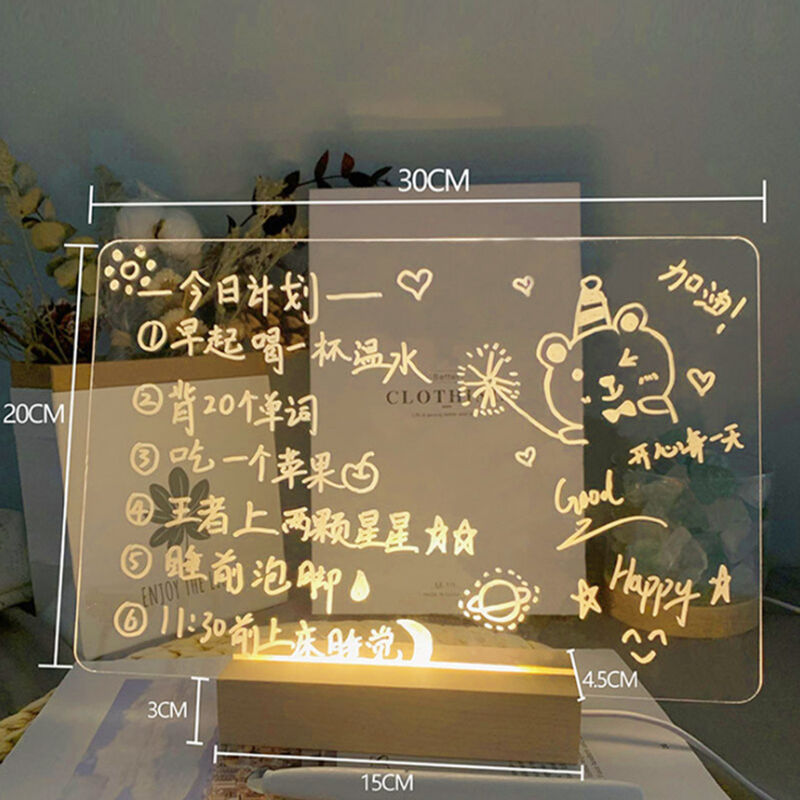 30CM
20CM
一今日计划一
加油!
①早起喝一杯温水
②背20个单词
③吃一个苹果
④王者上两颗星星
⑤睡前泡脚
⑥11:30前上床睡觉
开心每一天
Good
Happy
CLOTHI
ENJOY THE
4.5CM
3CM
15CM